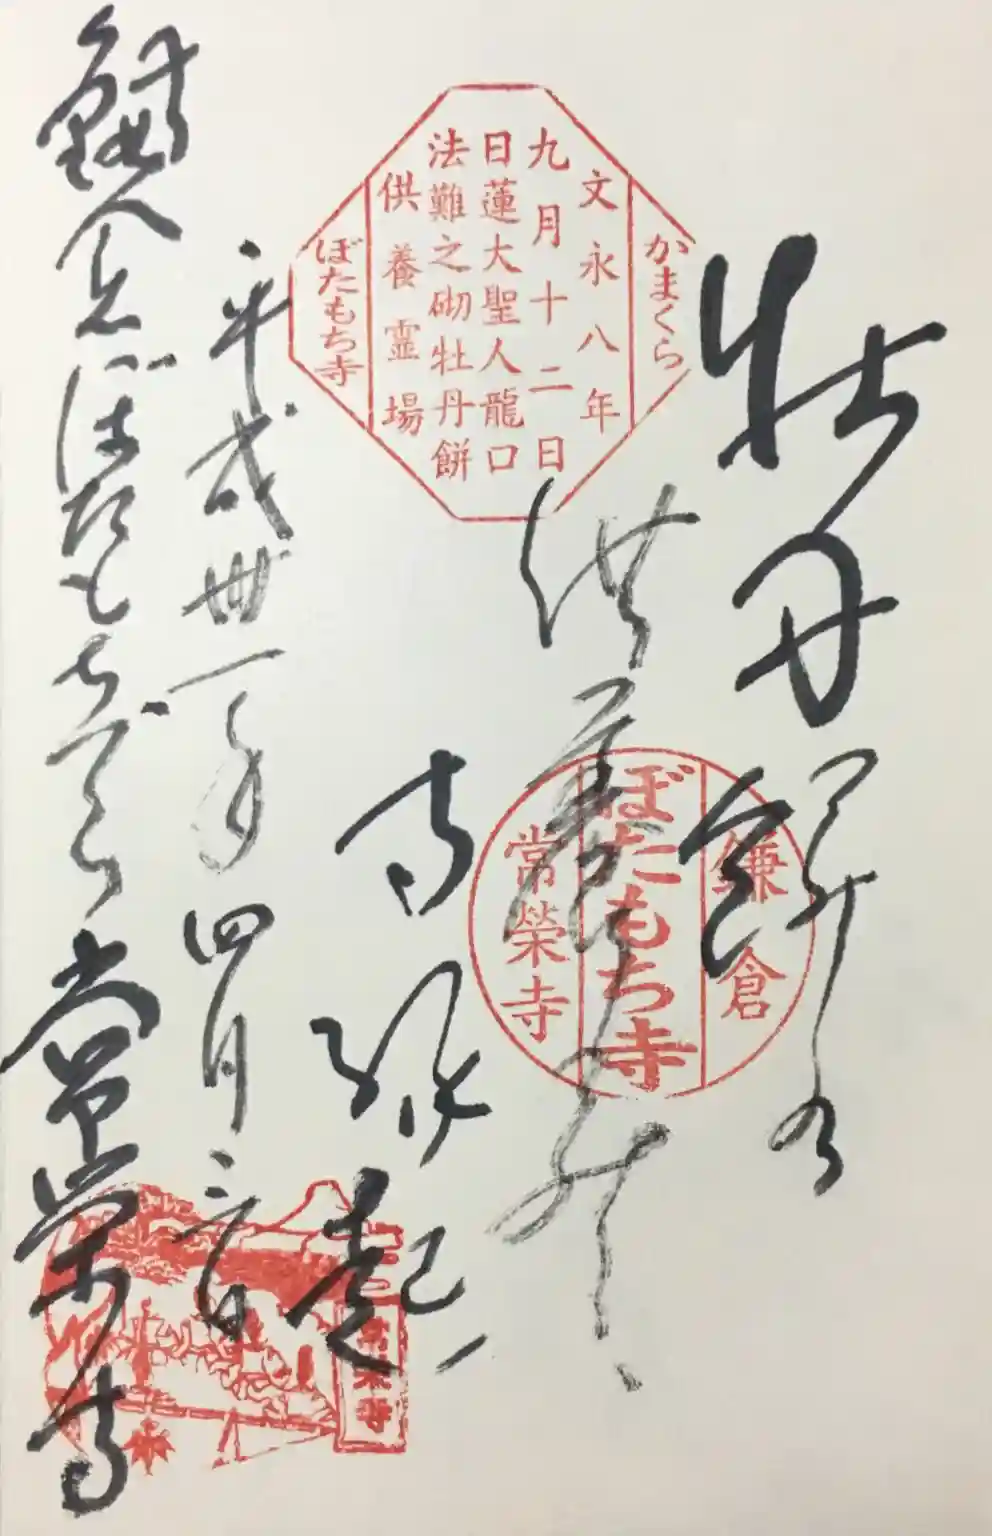 かまくら
文永八年
九月十二日
日蓮大聖人龍口
法難之砌牡丹餅
供養霊場
ぼたもち寺
牡丹餅
供養
寺縁起
鎌倉
ぼたもち寺
常榮寺
平成卅一年四月三日
鎌倉ぼたもちでら常榮寺
常榮寺